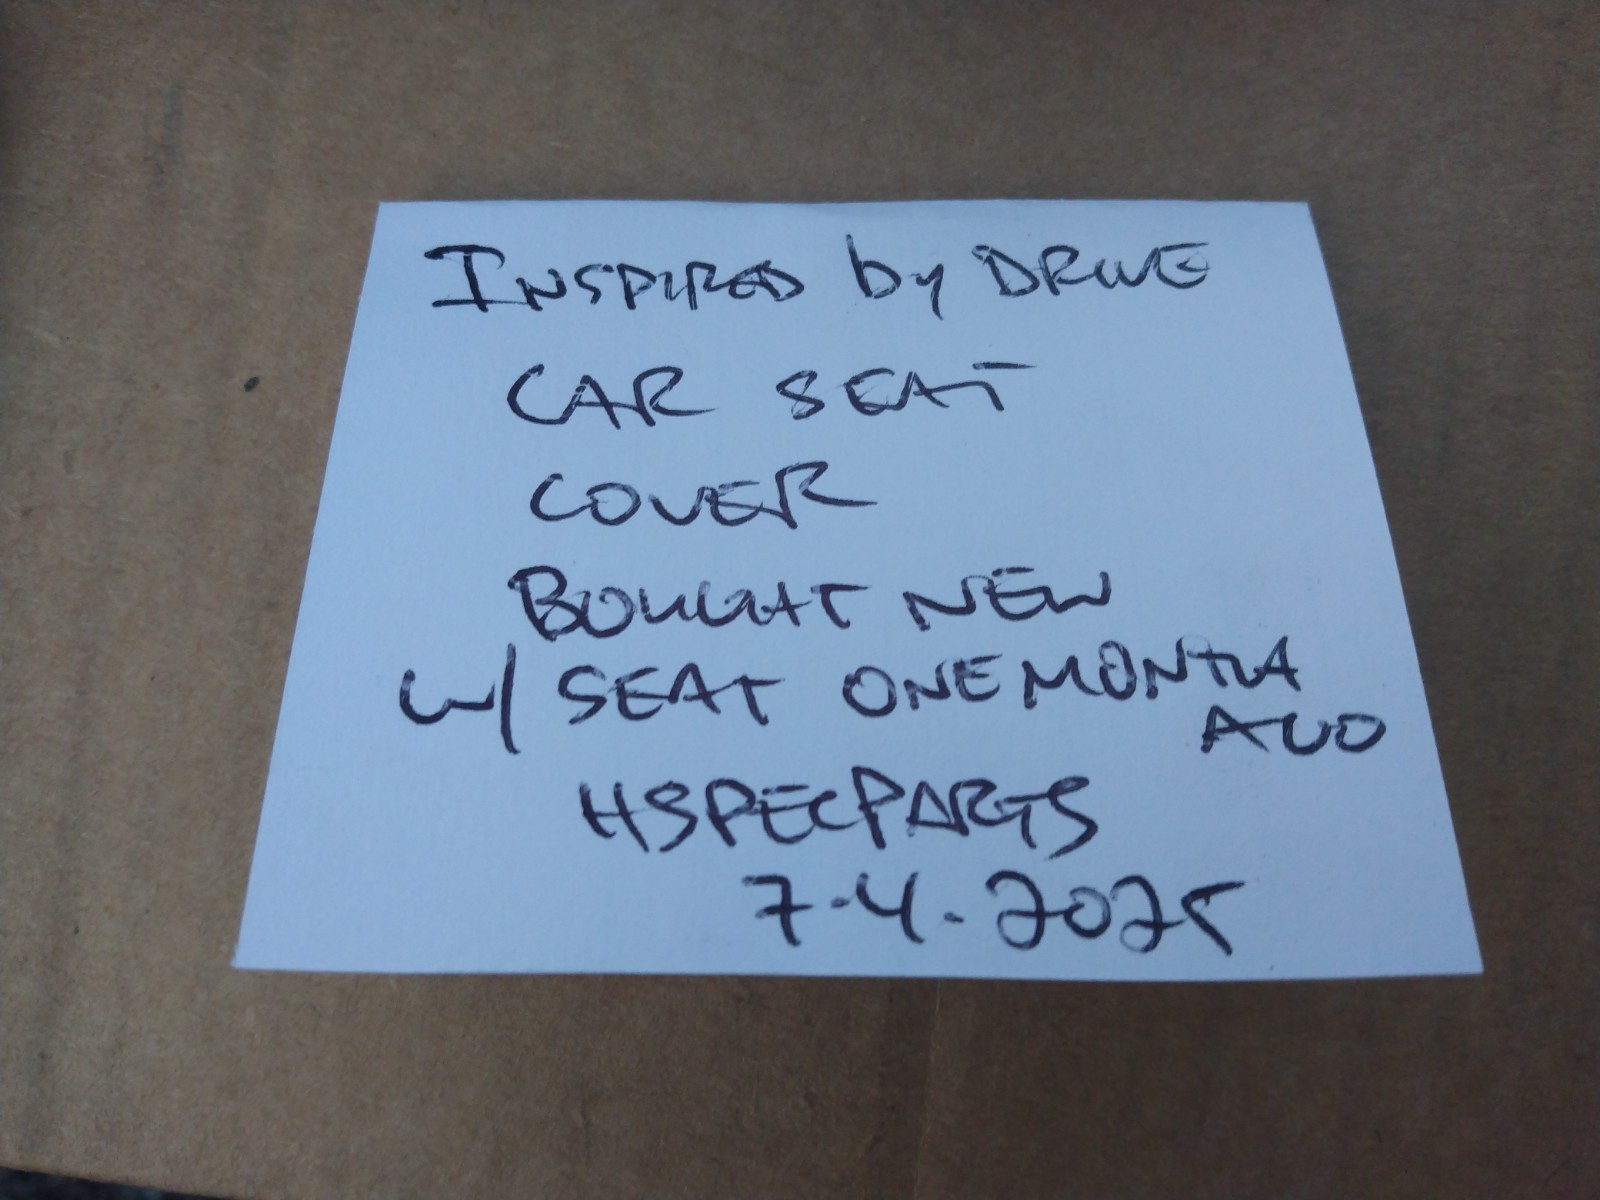 INSPIRED by DRIVE
CAR SEAT
COVER
BOUGHT NEW
W/ SEAT ONE MONTH
AGO
HSPECPARTS
7-4-2025